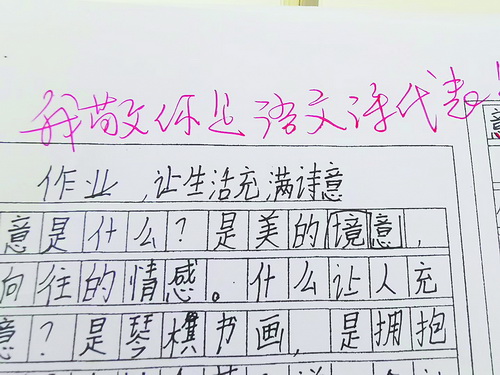 我敬你是语文课代表
作业,让生活充满诗意
意是什么?是美的境意,
向往的情感。什么让人充
意?是琴棋书画,是拥抱